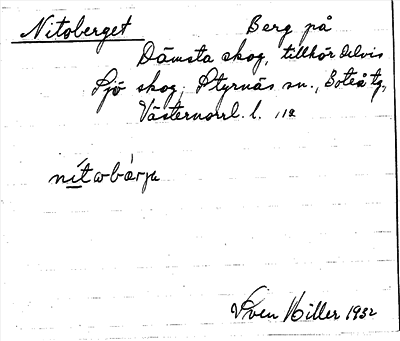 Nitoberget Berg på
Dämsta skog, tillhör delvis
Sjö skog, Styrnäs sn., Boteå tg.,
Västernorrl. l.
nítωbærjə
Sven Hiller 1932